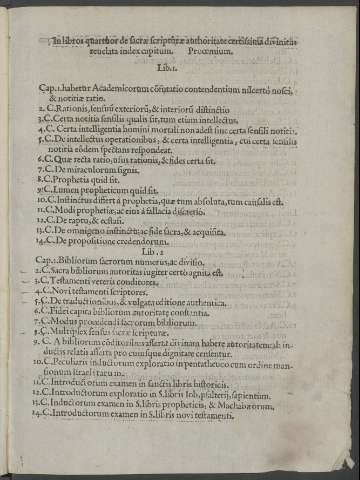 In libros quatthor de sacræ scripturæ authoritate certissima diuinitus
reuelata index capitum. Proœmium.
Lib.1.
Cap.1.habetur Academicorum cōfutatio contendentium nil certo nosci,
& notitiæ ratio.
2.C.Rationis, sensus exteriorū, & interiorū distinctio
3.C.Certa notitia sensilis qualis sit, tum etiam intellectus.
4.C. Certa intelligentia homini mortali non adest sine certa sensili notitia.
5.C.De intellectus operationibus, & certa intelligentia, cui certa sensilis
notitia eōdem spectans respondeat.
6.C.Quæ recta ratio, usus rationis, & fides certa sit.
7.C.De miraculorum signis.
8.C.Prophetia quid sit.
9.C.Lumen propheticum quid sit.
10.C.Instinctus differt à prophetia, quæ tum absoluta, tum causalis est.
11.C.Modi prophetiæ, ac eius à fallacia discretio.
12.C.De raptu, & ecstasi.
13.C.De omnigeno instinctu, ac fide sacra, & acquisita.
14.C.De propositione credendorum.
Lib.2
Cap.1.Bibliorum sacrorum numerus, ac diuisio.
2.C.Sacra bibliorum autoritas iugiter certo agnita est.
3.C.Testamenti veteris conditores.
4.C.Noui testamenti scriptores.
5.C.De traductionibus, & vulgata editione authentica.
6.C.Fidei capita bibliorum autoritate constantia.
7.C.Modus prouidendi sacrorum bibliorum.
8.C.Multiplex sensus sacræ scripturæ.
9.C. A bibliorum cōditoribus asserta diuinam habere autoritatem: ab in-
ductis relatis asserta pro cuiusque dignitate censentur.
10.C.Peculiaris inductorum exploratio in pentatheuco cum ordine man-
sionum Israelitarum.
11.C.Inductorum examen in sanctis libris historicis.
12.C.Introductorum exploratio in S.libris Iob, psalterij, sapientum.
13.C.Inductorum examen in S.libris propheticis, & Machabæorum.
14.C.Introductorum examen in S.libris noui testamenti.